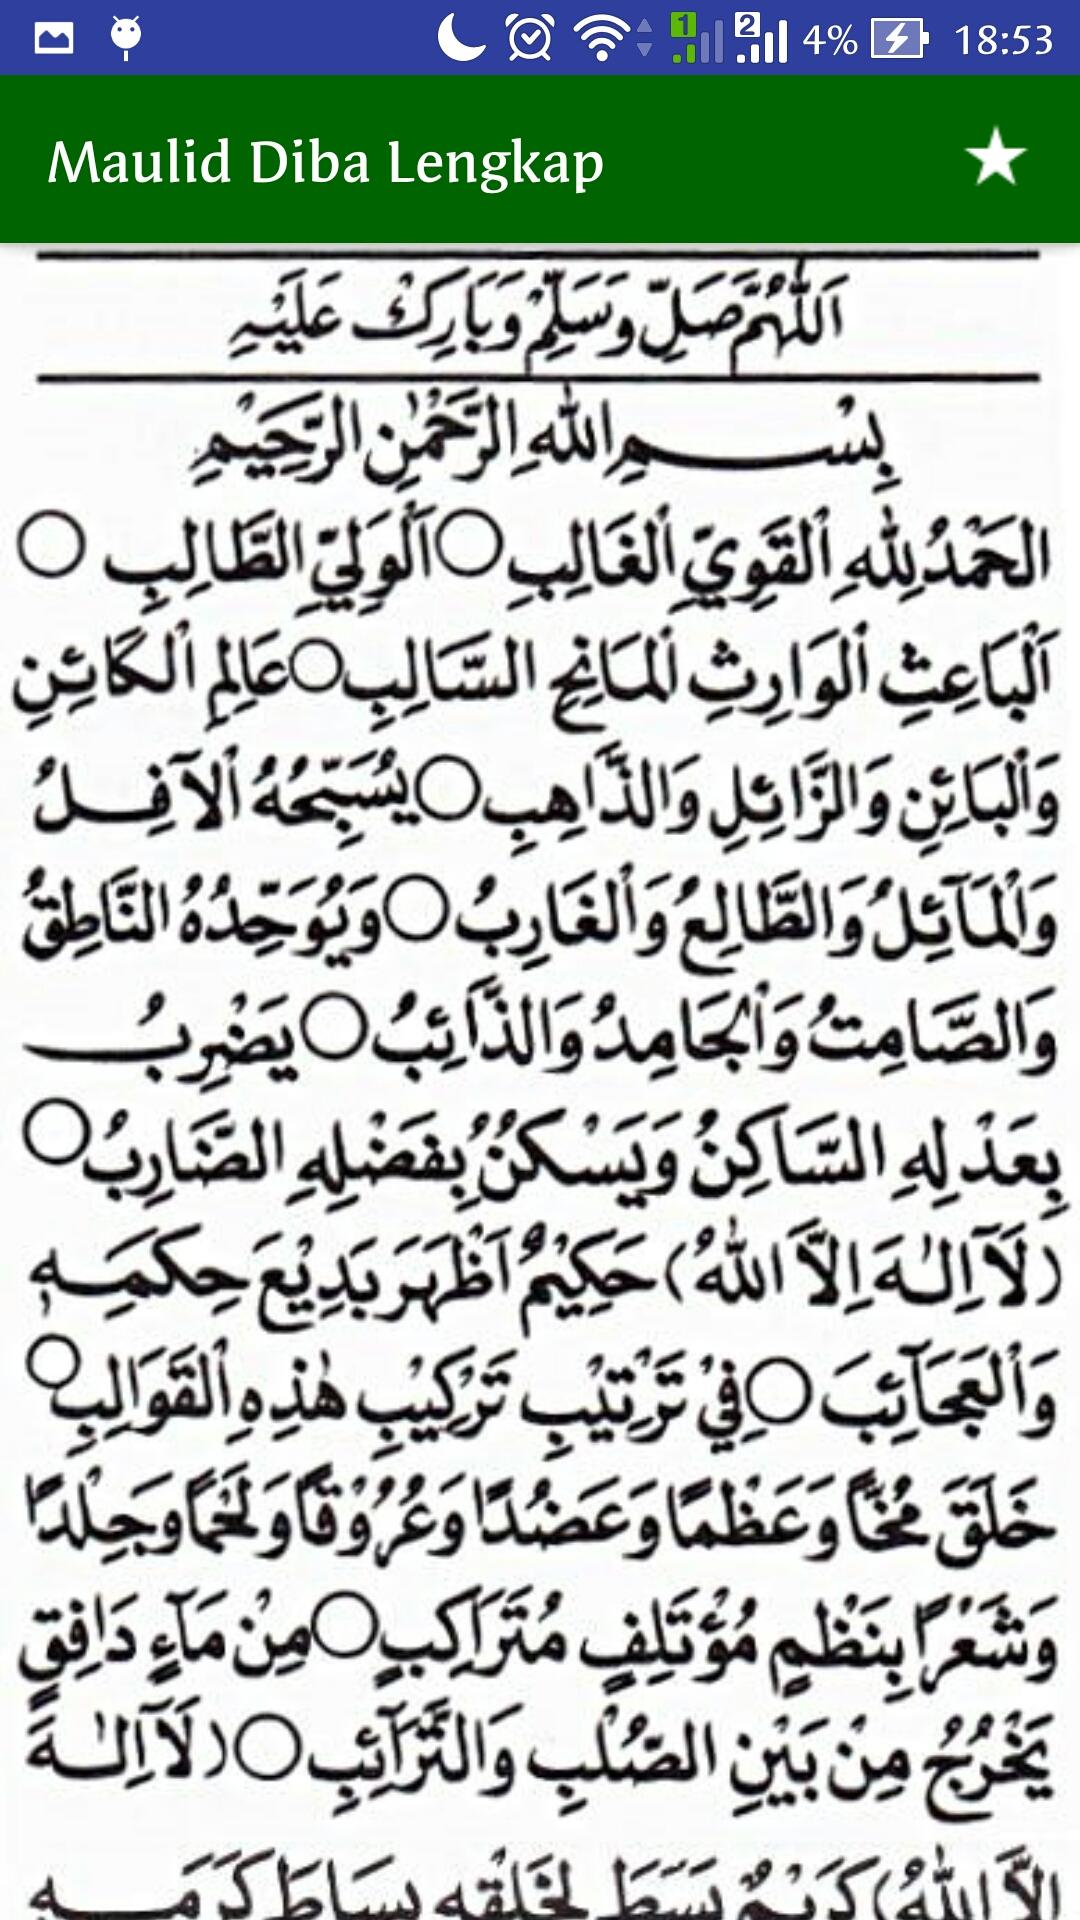 4% 18:53
Maulid Diba Lengkap
اَللّٰهُمَّ صَلِّ وَسَلِّمْ وَبَارِكْ عَلَيْهِ
بِسْمِ اللهِ الرَّحْمٰنِ الرَّحِيْمِ
الحَمْدُ لِلّٰهِ اْلقَوِيِّ اْلغَالِبِ ○ اَلْوَلِيِّ الطَّالِبِ ○
اَلْبَاعِثِ اْلوَارِثِ اْلمَانِحِ السَّالِبِ ○ عَالِمِ اْلكَائِنِ
وَاْلبَائِنِ وَالزَّائِلِ وَالذَّاهِبِ ○ يُسَبِّحُهُ اْلآفِلُ
وَاْلمَآئِلُ وَالطَّالِعُ وَاْلغَارِبُ ○ وَيُوَحِّدُهُ النَّاطِقُ
وَالصَّامِتُ وَاْلجَامِدُ وَالذَّائِبُ ○ يَضْرِبُ
بِعَدْلِهِ السَّاكِنُ وَيَسْكُنُ بِفَضْلِهِ الضَّارِبُ ○
(لَآ اِلٰهَ اِلاَّ اللهُ) حَكِيْمٌ اَظْهَرَ بَدِيْعَ حِكَمِهٖ
وَاْلعَجَآئِبَ ○ فِيْ تَرْتِيْبِ تَرْكِيْبِ هٰذِهِ اْلقَوَالِبِ ○
خَلَقَ مُخًّا وَعَظْمًا وَعَضُدًا وَعُرُوْقًا وَلَحْمًا وَجِلْدًا
وَشَعْرًا بِنَظْمٍ مُؤْتَلِفٍ مُتَرَاكِبٍ ○ مِنْ مَآءٍ دَافِقٍ
يَخْرُجُ مِنْ بَيْنِ الصُّلْبِ وَالتَّرَآئِبِ ○ (لَآ اِلٰهَ
اِلاَّ اللهُ) كَرِيْمٌ بَسَطَ لِخَلْقِهِ بِسَاطَ كَرَمِهِ